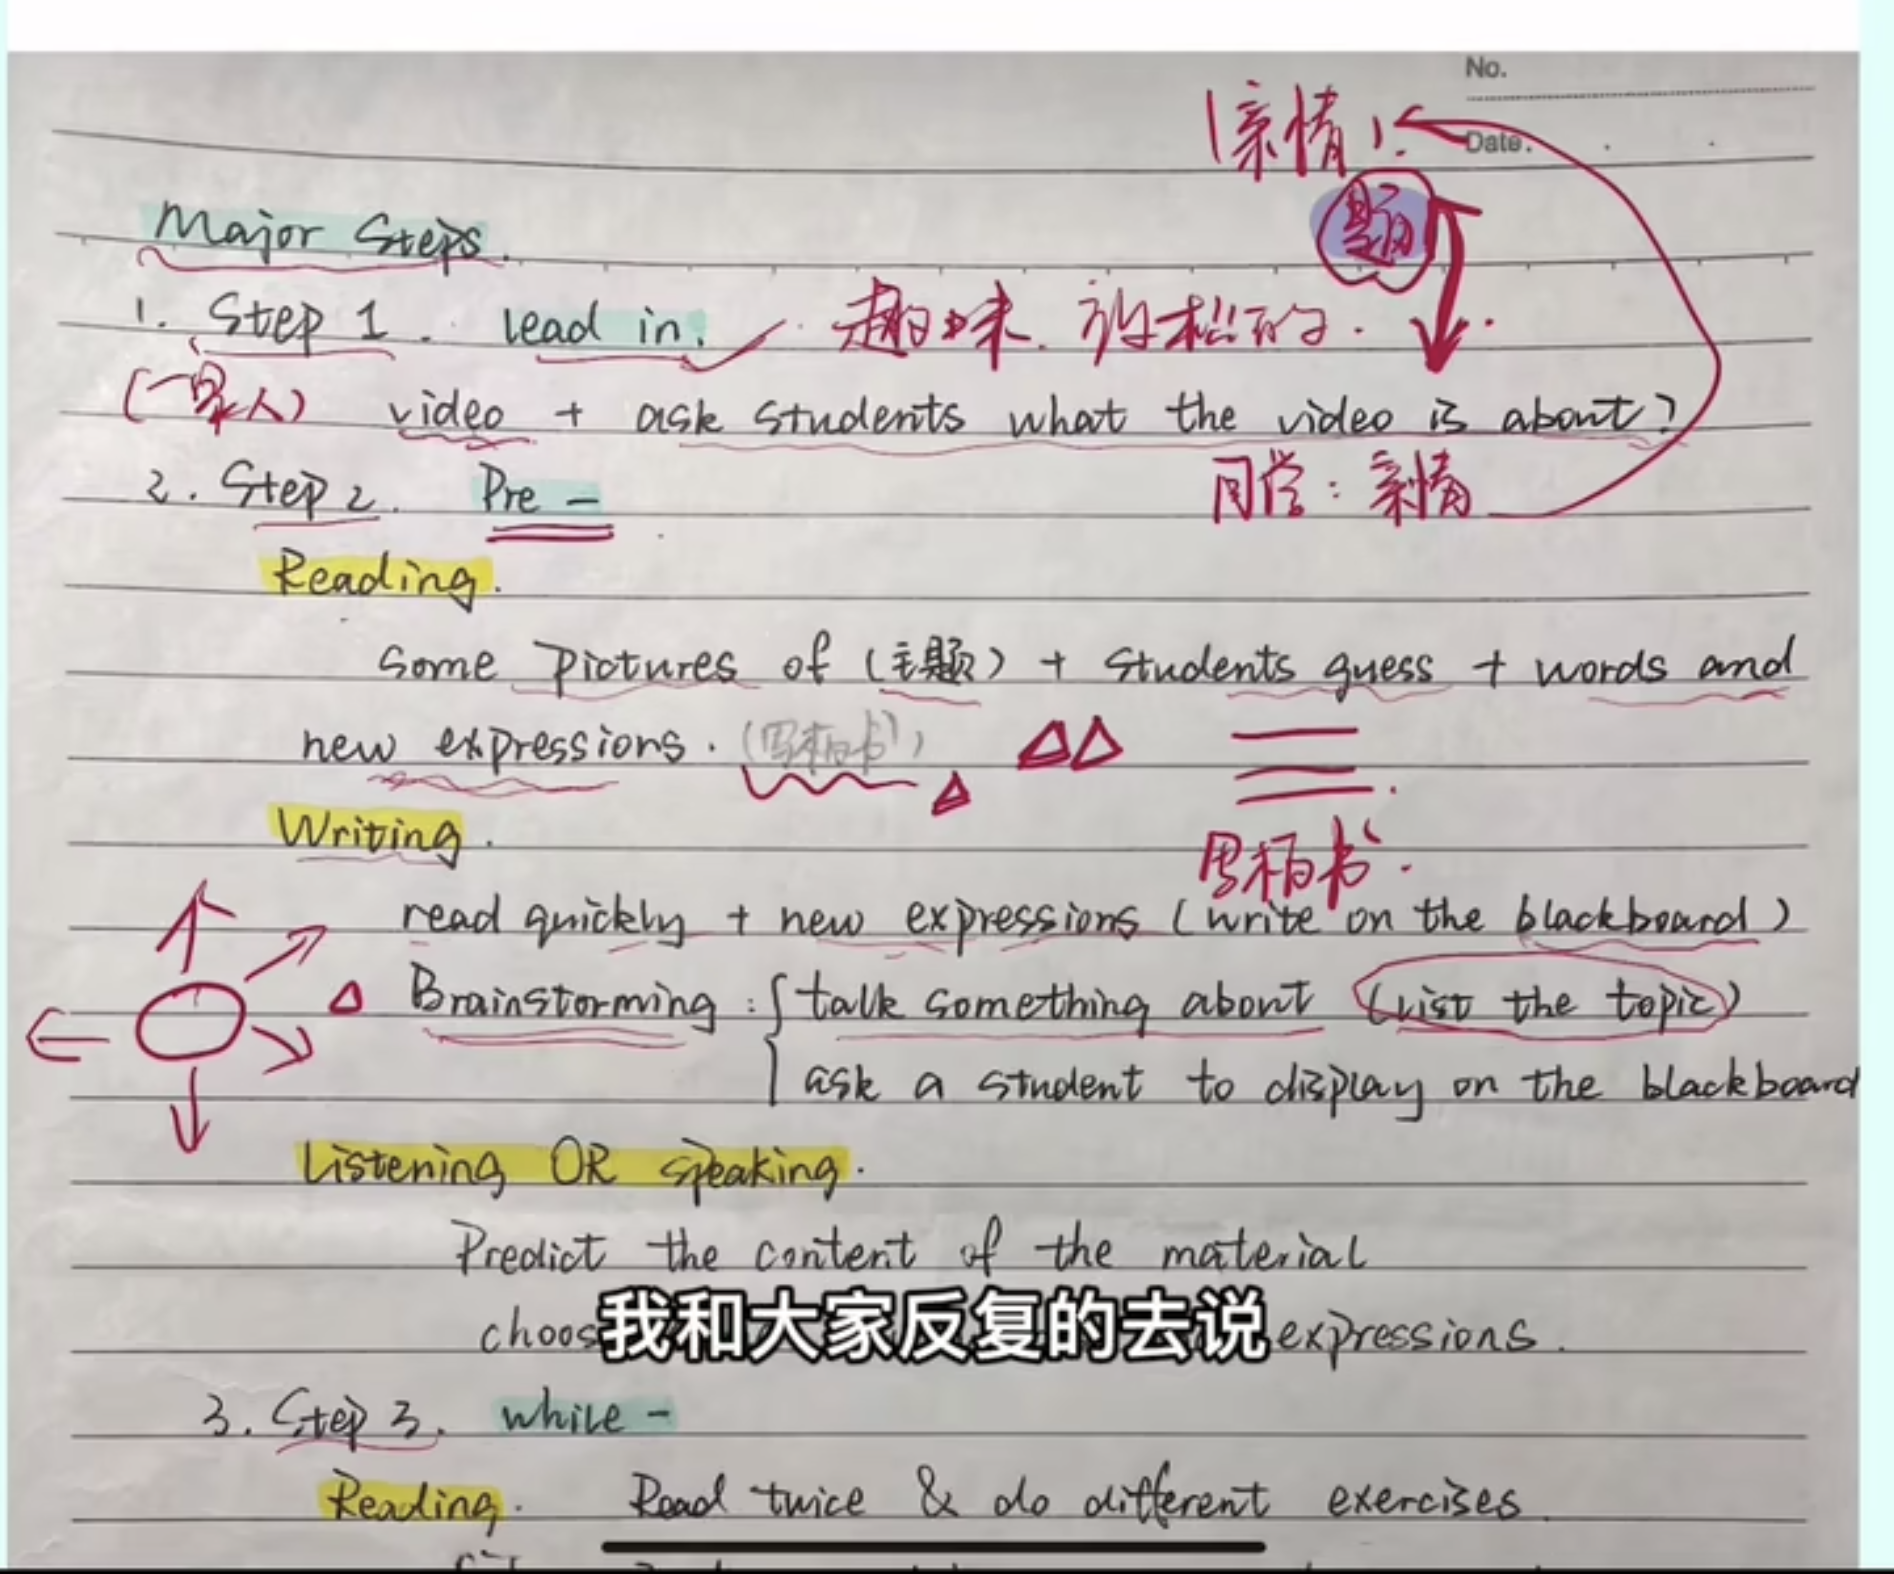 No.
(亲情)
Date.
题
Major Steps.
1. Step 1. lead in. 趣味. 放松的.
(一家人) video + ask students what the video is about?
同学：亲情
2. Step 2. Pre -
Reading.
some pictures of (主题) + students guess + words and
new expressions. (写板书)
Writing.
写板书.
read quickly + new expressions (write on the blackboard)
Brainstorming: { talk something about (list the topic)
ask a student to display on the blackboard
Listening OR speaking.
Predict the content of the material
我和大家反复的去说
expressions.
3. Step 3. while -
Reading. Read twice & do different exercises.